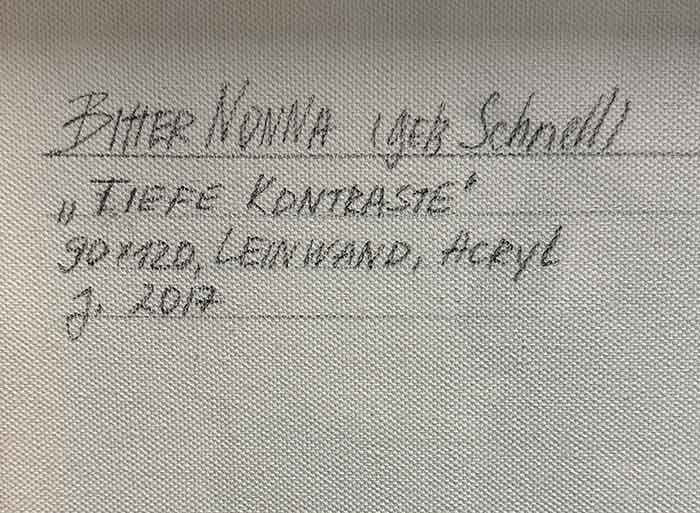 BITTER NONNA (geb Schnell)
„TIEFE KONTRASTE"
90x120, LEINWAND, ACRYL
J. 2017